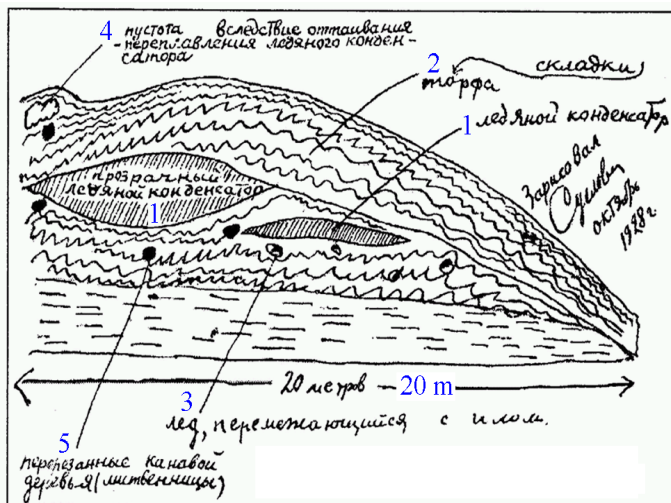 4 пустота вследствие оттаивания
-переплавления ледяного конден-
сатора
2 складки
торфа
1 ледяной конденсатор
прозрачный
ледяной конденсатор
1
Зарисовал
октябрь
1928г.
20 метров - 20 m
3
лед, перемежающийся с илом.
5
перерезанные канавой
деревья (лиственницы)